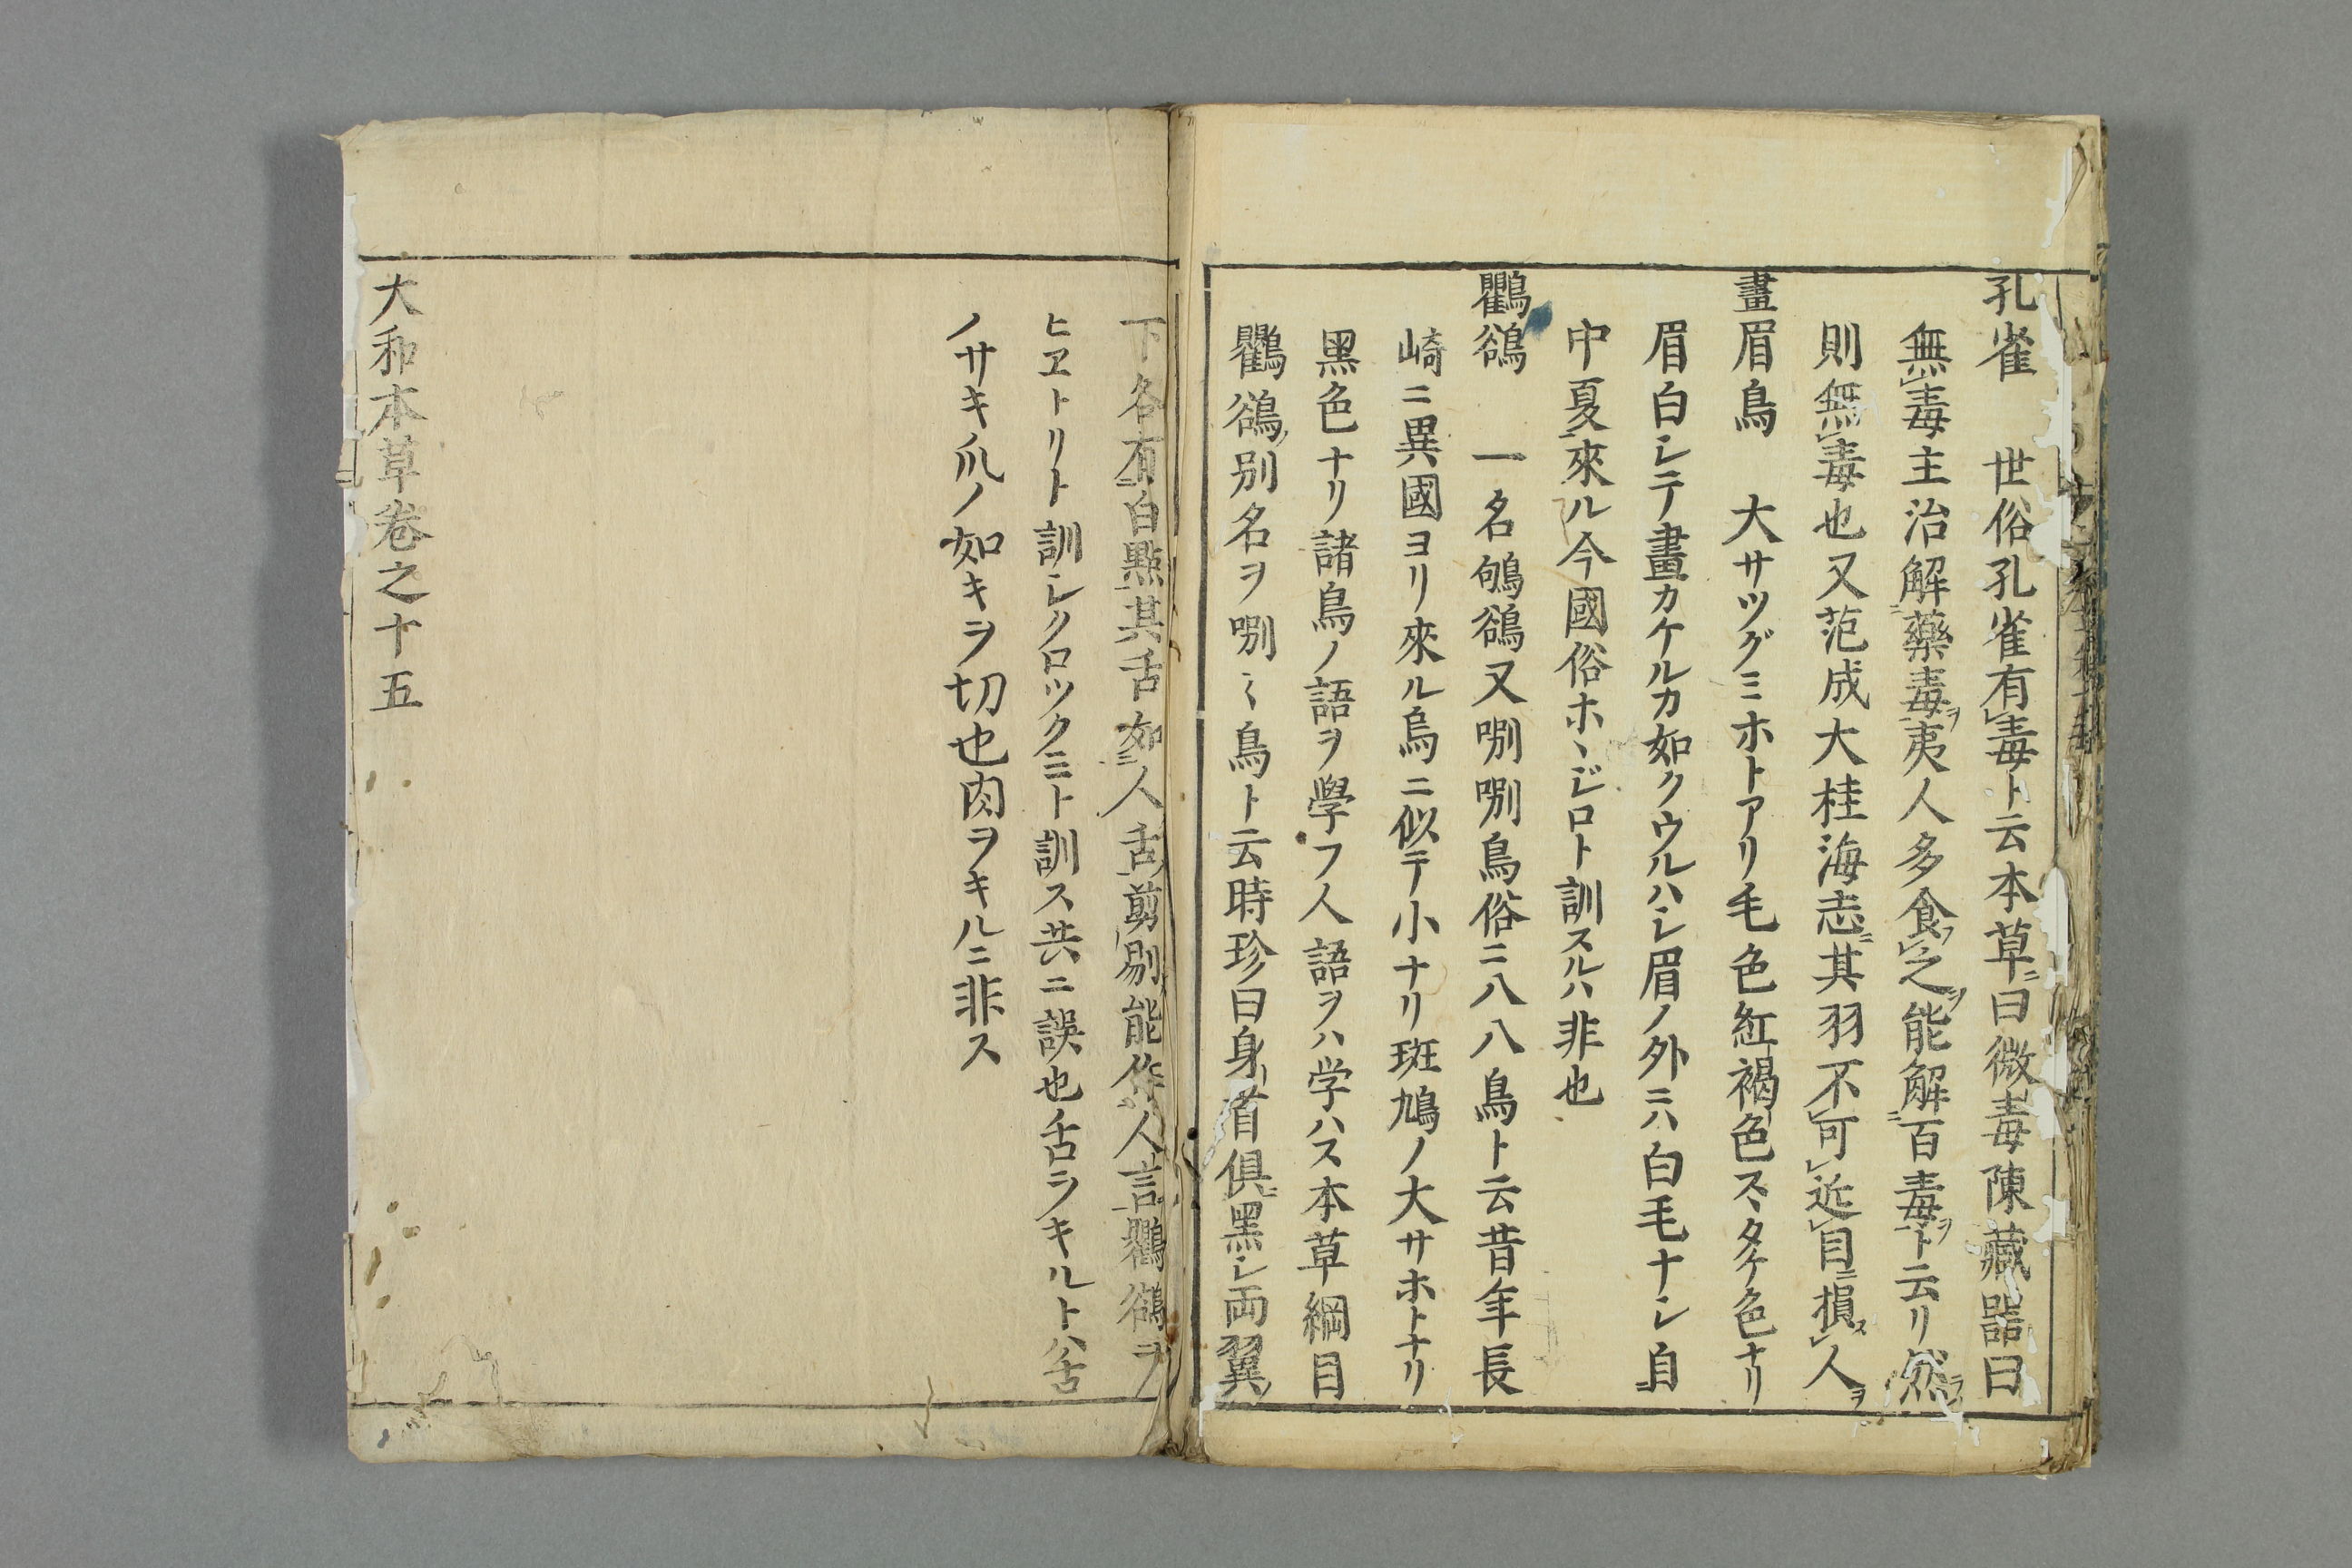 孔雀　世俗孔雀有毒ト云本草ニ曰微毒陳藏器曰
無毒主治解藥毒ヲ夷人多食フ之ヲ能解百毒ヲト云リ然ラハ
則無毒也又范成大桂海志ニ其羽不可近目ニ損ス人ヲ
畫眉鳥　大サツグミホトアリ毛色紅褐色スヽタケ色ナリ
眉白シテ畫カケルカ如クウルハシ眉ノ外ニハ白毛ナシ自
中夏來ル今國俗ホヽジロト訓スルハ非也
鸜鵒　一名鴝鵒又唎唎鳥俗ニ八八鳥ト云昔年長
崎ニ異國ヨリ來ル烏ニ似テ小ナリ斑鳩ノ大サホトナリ
黑色ナリ諸鳥ノ語ヲ學フ人語ヲハ学ハス本草綱目
鸜鵒別名ヲ唎〻鳥ト云時珍曰身首俱ニ黑シ両翼ノ
下各有白點其舌如人舌剪剔能作人言鸜鵒ヲ
ヒヱトリト訓シクロツクミト訓ス共ニ誤也舌ヲキルトハ舌
ノサキ爪ノ如キヲ切也肉ヲキルニ非ス
大和本草卷之十五